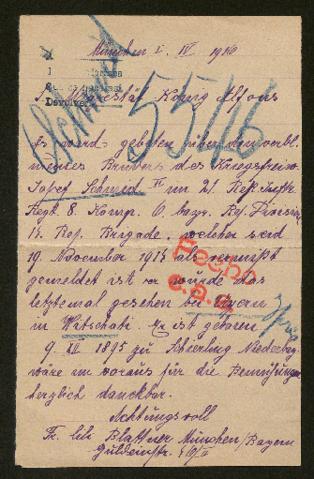 München i. IV 1916
Devolver
Schmid
55/16
Majestät König Alfons
Es wird gebeten über den Verbl.
meines Bruders des Kriegsfreiw.
Josef Schmid II im 21. Res. Inftr.
Regt. 8. Komp. 6. bayr. Res. Division
14. Res. Brigade, welcher seid
19. November 1914 als vermißt
gemeldet ist er wurde das
letztemal gesehen bei Ypern
in Witschati. Er ist geboren
9. III 1895 zu Schierling Niederbay.
wäre im voraus für die Bemühungen
herzlich dankbar.
Fecho
Achtungsvoll
Fr. Lili Blattner München/Bayern
Guldeinstr.